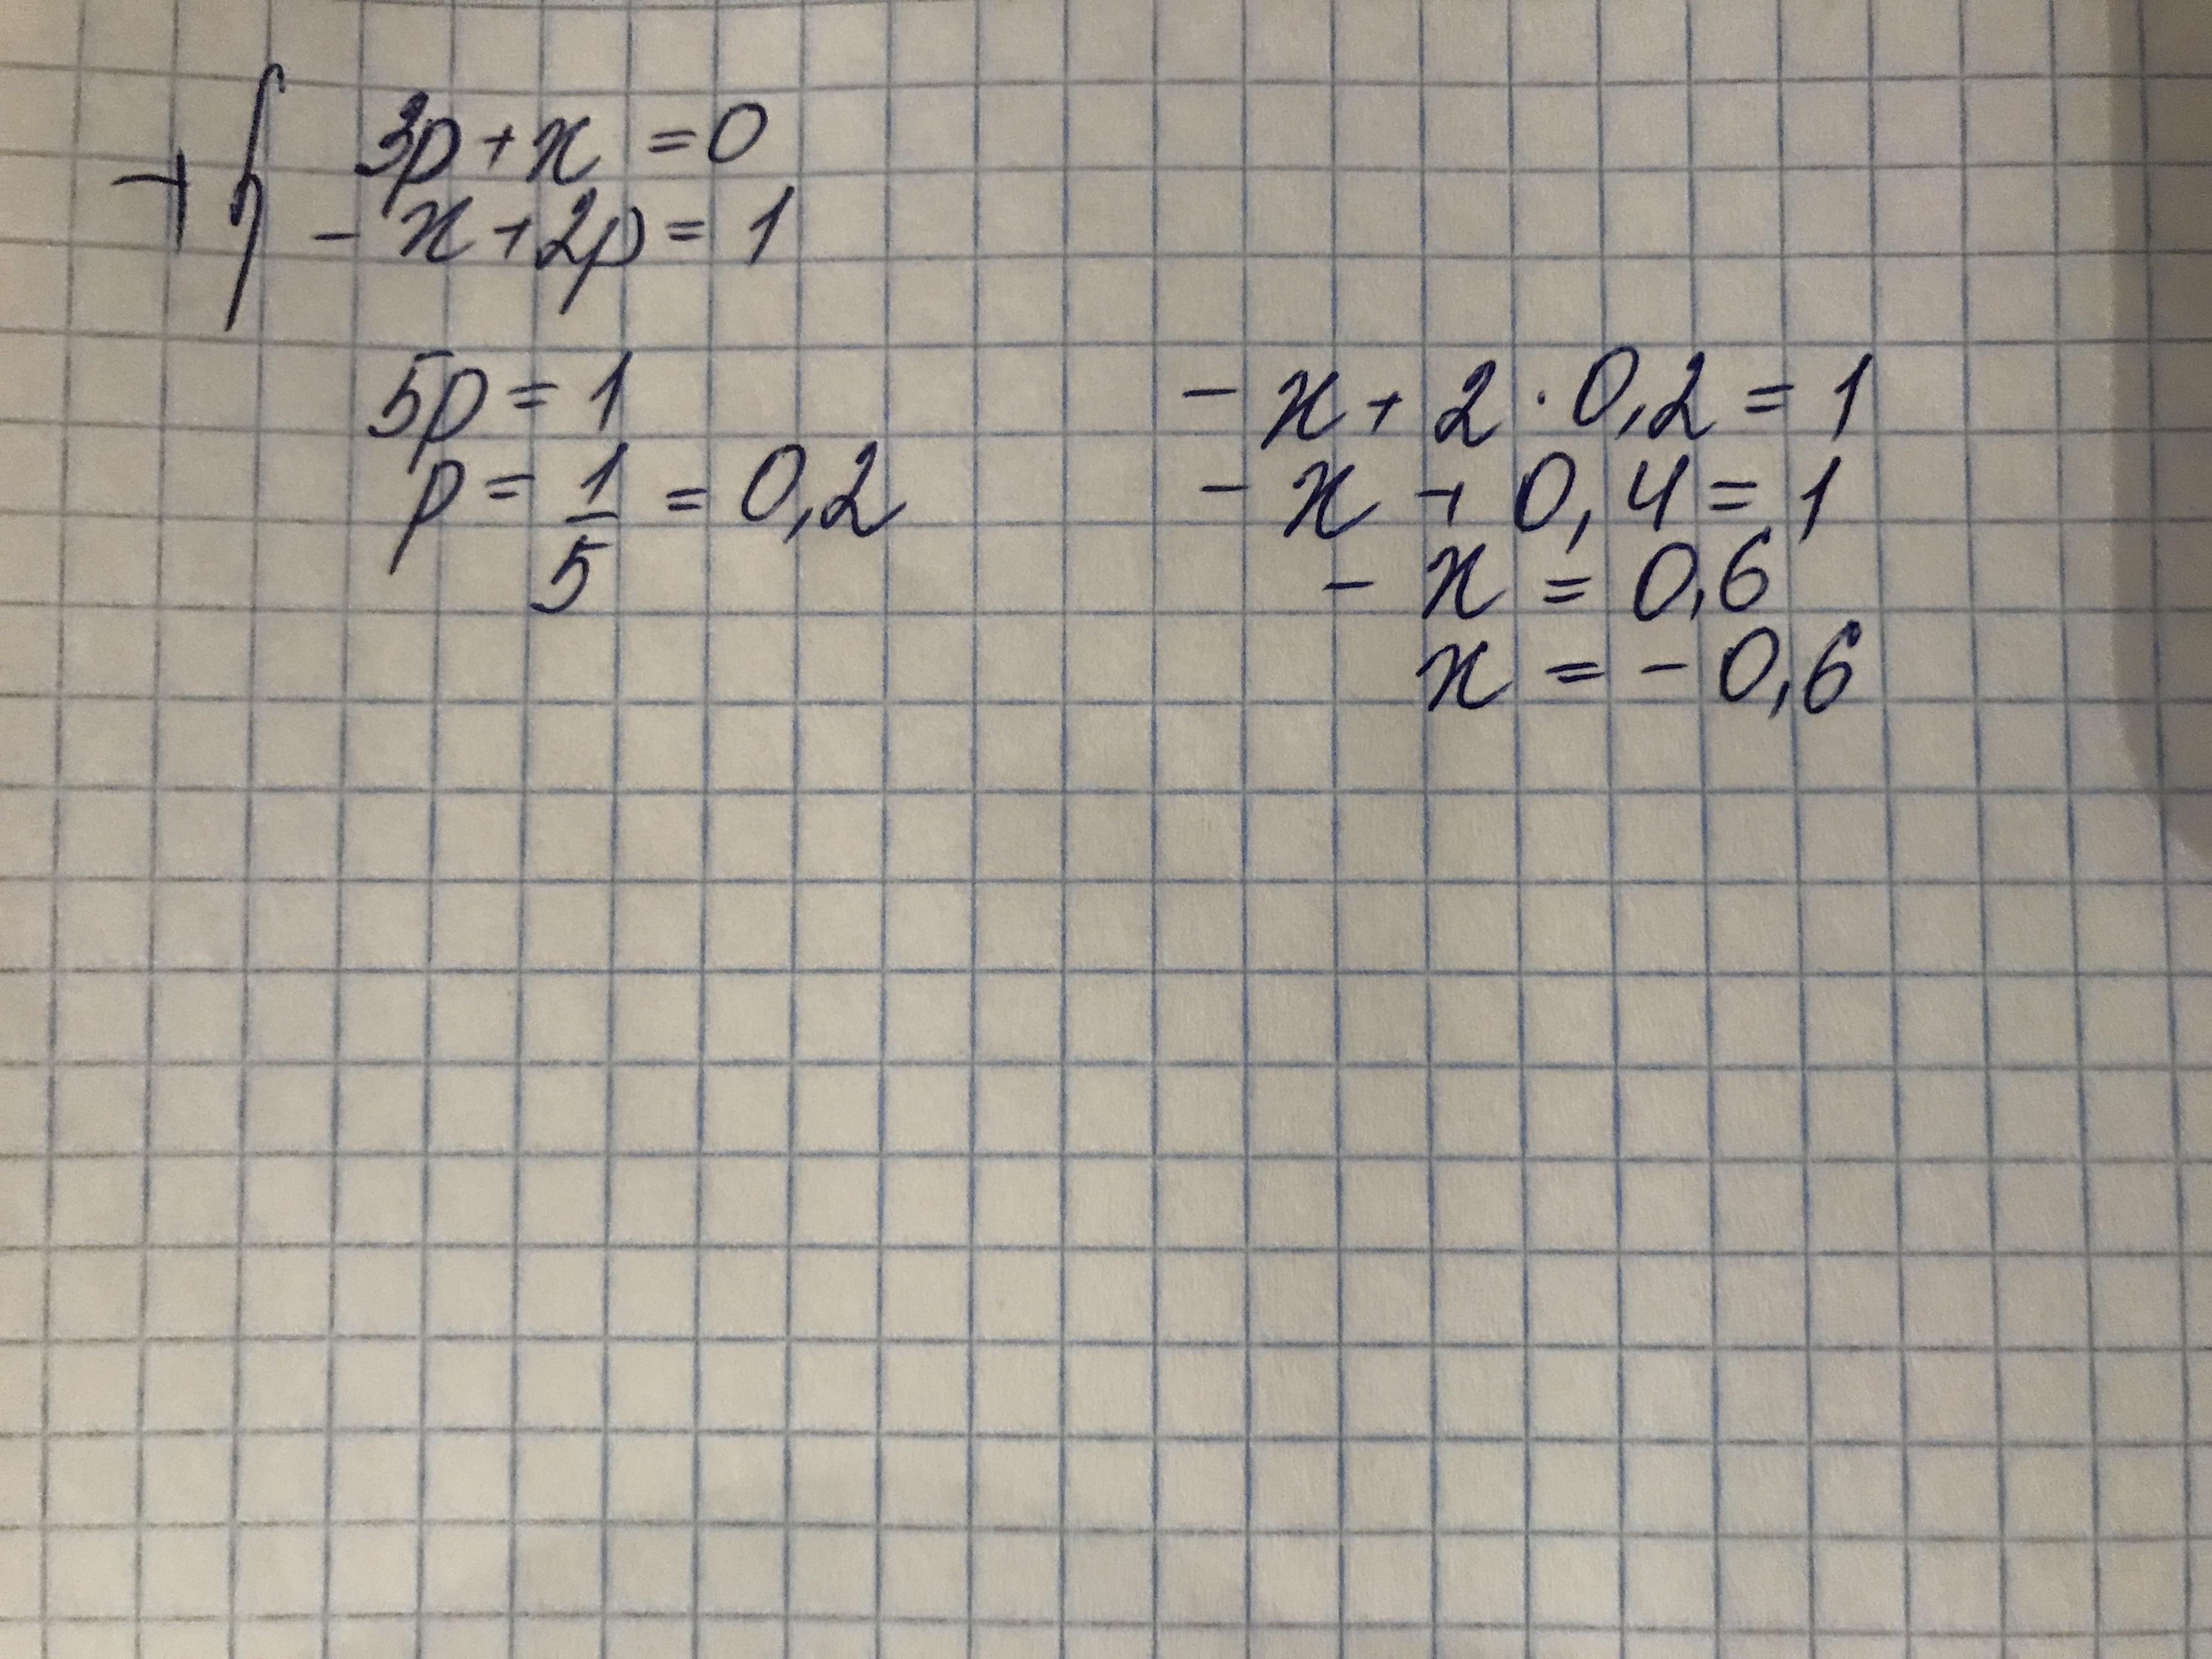 + { 3p + x = 0
- x + 2p = 1
5p = 1
p = 1/5 = 0,2
- x + 2 · 0,2 = 1
- x + 0,4 = 1
- x = 0,6
x = - 0,6